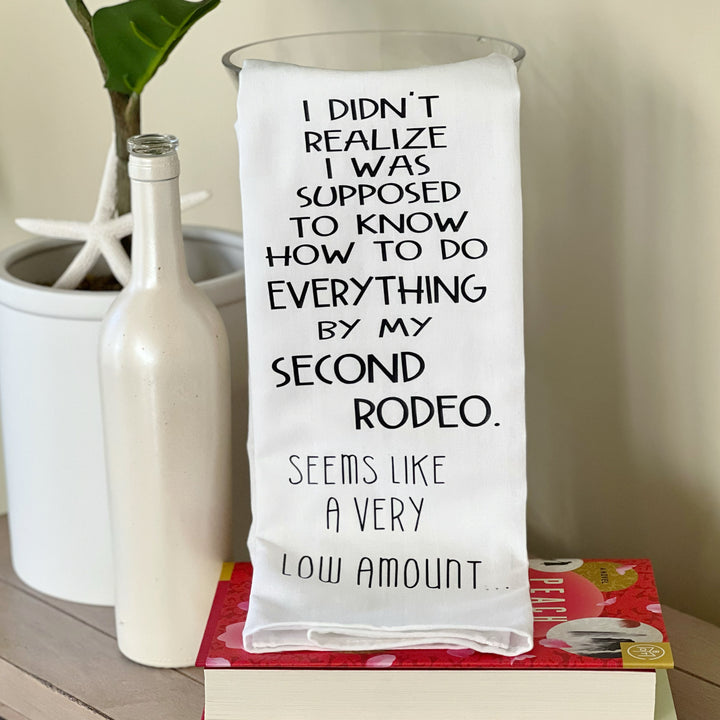 I DIDN'T
REALIZE
I WAS
SUPPOSED
TO KNOW
HOW TO DO
EVERYTHING
BY MY
SECOND
RODEO.
SEEMS LIKE
A VERY
LOW AMOUNT...
PEACH